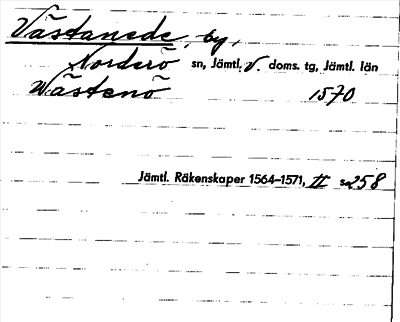 Västanede, by,
Norderö sn, Jämtl. V. doms. tg, Jämtl. län
Wästenö 1570
Jämtl. Räkenskaper 1564–1571, II s. 258